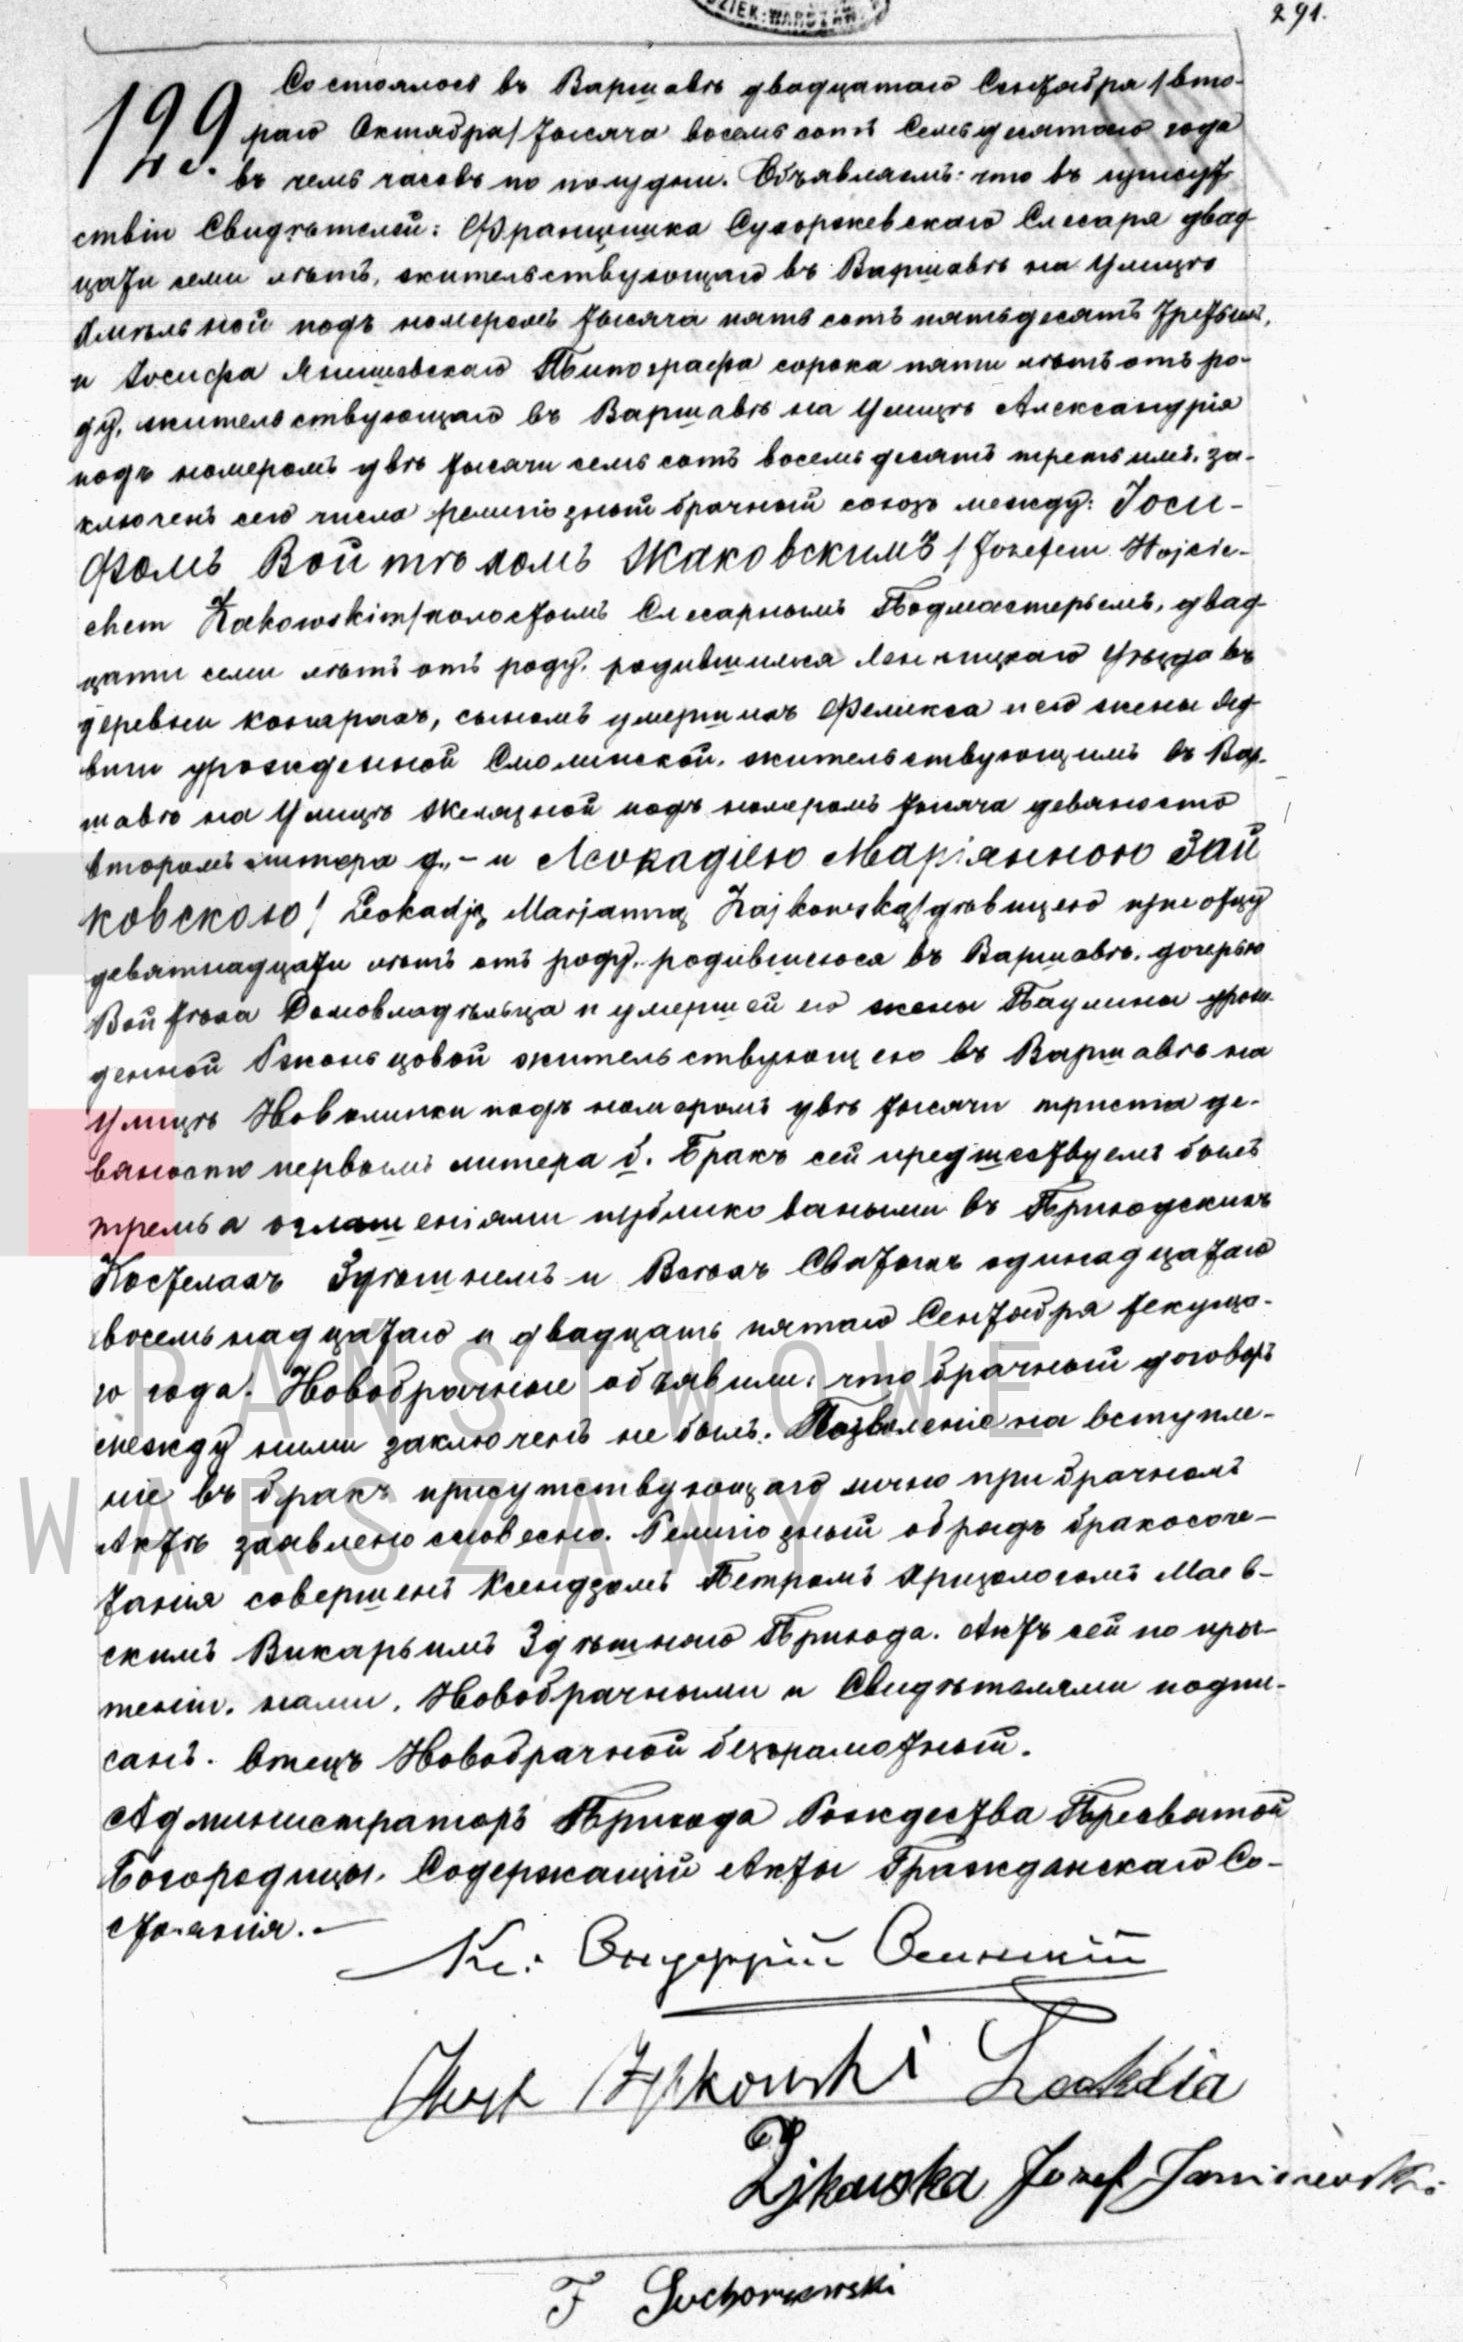 DZIEK-WARSZAW
291.
129.
Состоялось въ Варшавѣ двадцатаго Сентября /вто-
раго Октября/ тысяча восемь сотъ Семьдесятаго года
въ часовъ по полудни. Объявляемъ: что въ присут
ствіи Свидѣтелей: Францишка Сухоржевскаго Слесаря двад-
цати семи лѣтъ, жительствующаго въ Варшавѣ на Улицѣ
Хмѣльной подъ номеромъ тысяча пять сотъ пятьдесятъ третьимъ,
и Іосифа Типографа сорока пяти лѣтъ отъ ро-
ду, жительствующаго въ Варшавѣ на Улицѣ Александрія
подъ номеромъ двѣ тысячи семь сотъ восемьдесятъ третьимъ, за-
ключенъ сего числа религіозный брачный союзъ между: Іоси-
фомъ Войтѣхомъ Жаковскимъ / Józefem Wojcie-
chem Żakowskim/ холостымъ Слесарнымъ Подмастерьемъ, двад-
цати семи лѣтъ отъ роду, родившимся Ленчицкаго Уѣзда въ
деревни сыномъ умершихъ Феликса и его жены Яд-
виги урожденной Смолинской, жительствующимъ въ Вар-
шавѣ на Улицѣ Желязной подъ номеромъ тысяча девяносто
вторымъ литера д., - и Леокадіею Маріанною Зай
ковскою / Leokadją Marjanną Zajkowską/ дѣвицею при отцу
девятнадцати лѣтъ отъ роду, родившеюся въ Варшавѣ, дочерью
Войтѣха Домовладѣльца и умершей его жены Паулины урож-
денной жительствующею въ Варшавѣ на
Улицѣ Новолипки подъ номеромъ двѣ тысячи триста де-
вяносто первымъ литера б. Бракъ сей предшествуемъ былъ
тремья оглашеніями публиковаными въ Приходскихъ
Костелахъ Здѣшнемъ и Всѣхъ Святыхъ одинадцатаго
восемьнадцатаго и двадцать пятаго Сентября текуща-
го года. Новобрачные объявили: что брачный договоръ
между ними заключенъ не былъ. Позволеніе на вступле-
ніе въ бракъ присутствующаго лично при брачномъ
Актѣ заявлено словесно. Религіозный обрядъ бракосоче-
танія совершенъ Ксендзомъ Петромъ Хризологомъ Маев-
скимъ Викарьимъ Здѣшнаго Прихода. Актъ сей по про-
теніи, нами, Новобрачными и Свидѣтелями подпи-
санъ. Отецъ Новобрачной безграмотный.
Администраторъ Прихода Рождества Пресвятой
Богородицы, Содержащій Акты Гражданскаго Со-
стоянія.-
Кс:
Leokadia
Zjkowska Jozef
F Suchorzewski
PAŃSTWOWE
WARSZAWY